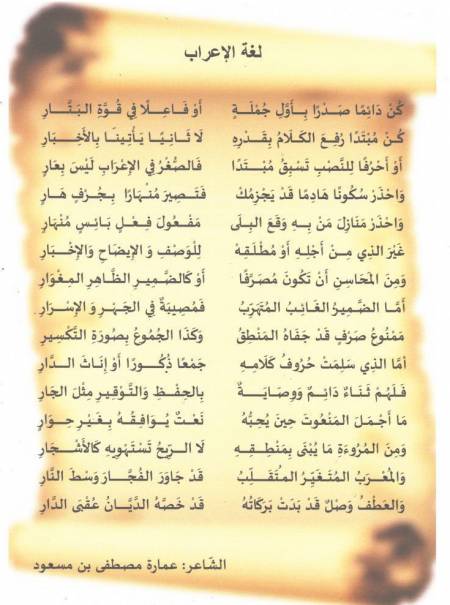 لغة الإعراب
كُنْ دَائِمًا صَدْرًا بِأَوَّلِ جُمْلَةٍ أَوْ فَاعِلًا فِي قُوَّةِ البَتَّارِ
كُنْ مُبْتَدًا رُفِعَ الكَلَامُ بِقَدْرِهِ لَا ثَانِيًا يَأْتِينَا بِالأَخْبَارِ
أَوْ أَحْرُفًا لِلنَّصْبِ تَسْبِقُ مُبْتَدًا فَالصُّغْرُ فِي الإِعْرَابِ لَيْسَ بِعَارِ
وَاحْذَرْ سُكُونًا هَادِمًا قَدْ يَجْزِمُكْ فَتَصِيرَ مُنْهَارًا بِجُرْفٍ هَارِ
وَاحْذَرْ مَنَازِلَ مَنْ بِهِ وَقَعَ البِلَى مَفْعُولَ فِعْلٍ بَائِسٍ مُنْهَارِ
غَيْرَ الَّذِي مِنْ أَجْلِهِ أَوْ مُطْلَقِهْ لِلْوَصْفِ وَ الإِيضَاحِ وَالإِخْبَارِ
وَمِنَ المَحَاسِنِ أَنْ تَكُونَ مُصَرَّفًا أَوْ كَالضَّمِيرِ الظَّاهِرِ المِغْوَارِ
أَمَّا الضَّمِيرُ الغَائِبُ المُتَهَرِّبُ فَمُصِيبَةٌ فِي الجَهْرِ وَ الإِسْرَارِ
مَمْنُوعُ صَرْفٍ قَدْ جَفَاهُ المَنْطِقُ وَكَذَا الجُمُوعُ بِصُورَةِ التَّكْسِيرِ
أمَّا الَّذِي سَلِمَتْ حُرُوفُ كَلَامِهِ جَمْعًا ذُكُورًا أَوْ إِنَاثَ الدَّارِ
فَلَهُمْ ثَنَاءٌ دَائِمٌ وَوِصَايَةٌ بِالحِفْظِ وَالتَّوْقِيرِ مِثْلَ الجَارِ
مَا أَجْمَلَ المَنْعُوتَ حِينَ يُحِبُّهُ نَعْتٌ يُوَافِقُهُ بِغَيْرِ حِوَارِ
وَمِنَ المُرُوءَةِ مَا يُبْنَى بِمَنْطِقِهِ لَا الرِّيحُ تَسْتَهْوِيهِ كَالأَشْجَارِ
وَالمُعْرَبُ المُتَغَيِّرُ المُتَقَلِّبُ قَدْ جَاوَرَ الفُجَّارَ وَسْطَ النَّارِ
وَالعَطْفُ وَصْلٌ قَدْ بَدَتْ بَرَكَاتُهُ قَدْ خَصَّهُ الدَّيَّانُ عُقْبَى الدَّارِ
الشَّاعر: عمارة مصطفى بن مسعود